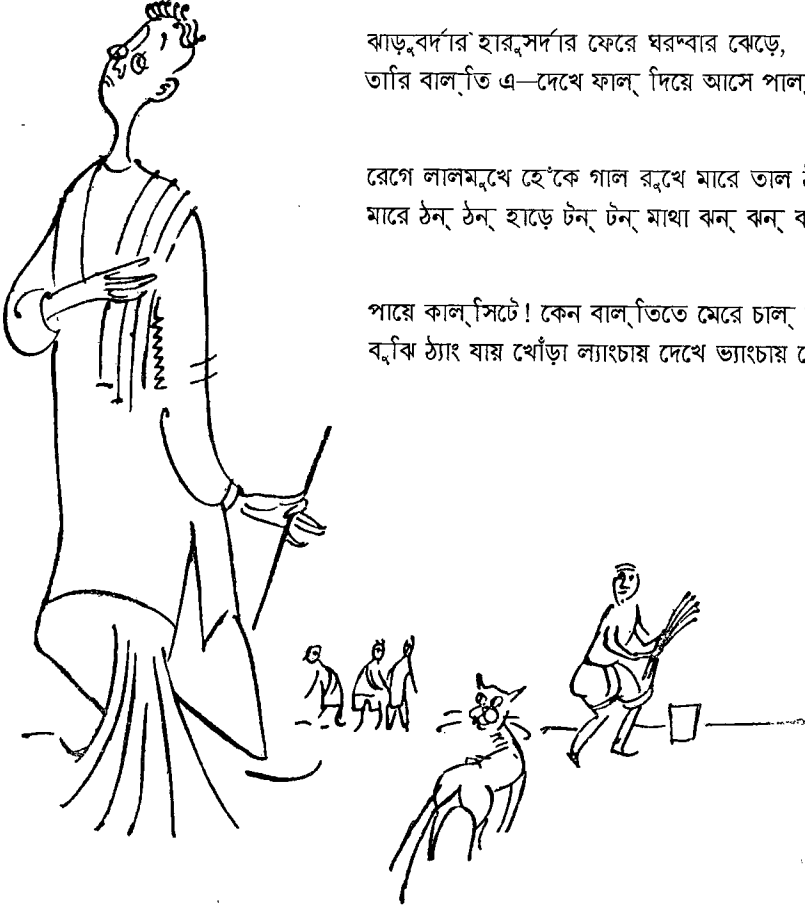 ঝাড়ুবর্দার হারুসর্দার ফেরে ঘরদ্বার ঝেড়ে,
তারি বাল্‌তি এ—দেখে ফাল্ দিয়ে আসে পাল্
রেগে লালমুখে হেঁকে গাল রুখে মারে তাল
মারে ঠন্ ঠন্ হাড়ে টন্ টন্ মাথা ঝন্ ঝন্
পায়ে কাল্‌সিটে! কেন বাল্‌তিতে মেরে চাল্
বুঝি ঠ্যাং যায় খোঁড়া ল্যাংচায় দেখে ভ্যাংচায়